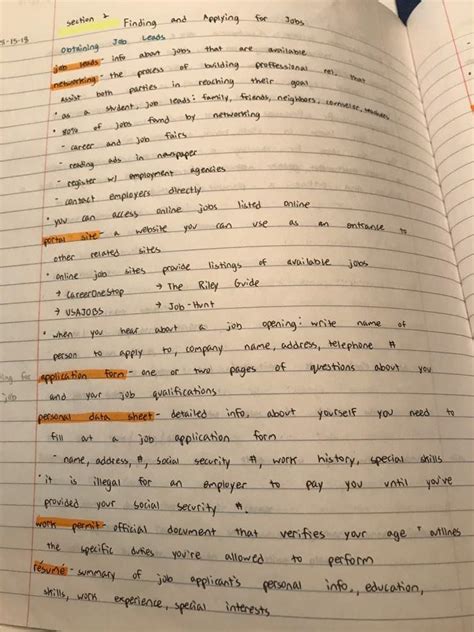 section 2 Finding and Applying for Jobs
-15-18
Obtaining Job Leads
job leads - info about jobs that are available
networking - the process of building proffessional rel. that
assist both parties in reaching their goal
• as a student, job leads: family, friends, neighbors, counselor, teachers
• 80% of jobs found by networking
- career and job fairs
- reading ads in newspaper
- register w/ employment agencies
- contact employers directly
• you can access online jobs listed online
portal site - a website you can use as an entrance to
other related sites
• online job sites provide listings of available jobs
→ CareerOneStop → The Riley Guide
→ USAJOBS → Job-Hunt
• when you hear about a job opening: write name of
person to apply to, company name, address, telephone #
application form - one or two pages of questions about you
and your job qualifications
personal data sheet - detailed info, about yourself you need to
fill out a job application form
- name, address, #, social security #, work history, special skills
• it is illegal for an employer to pay you until you've
provided your social security #.
work permit - official document that verifies your age + outlines
the specific duties you're allowed to perform
résumé - summary of job applicant's personal info., education,
skills, work experience, special interests
ing for
job